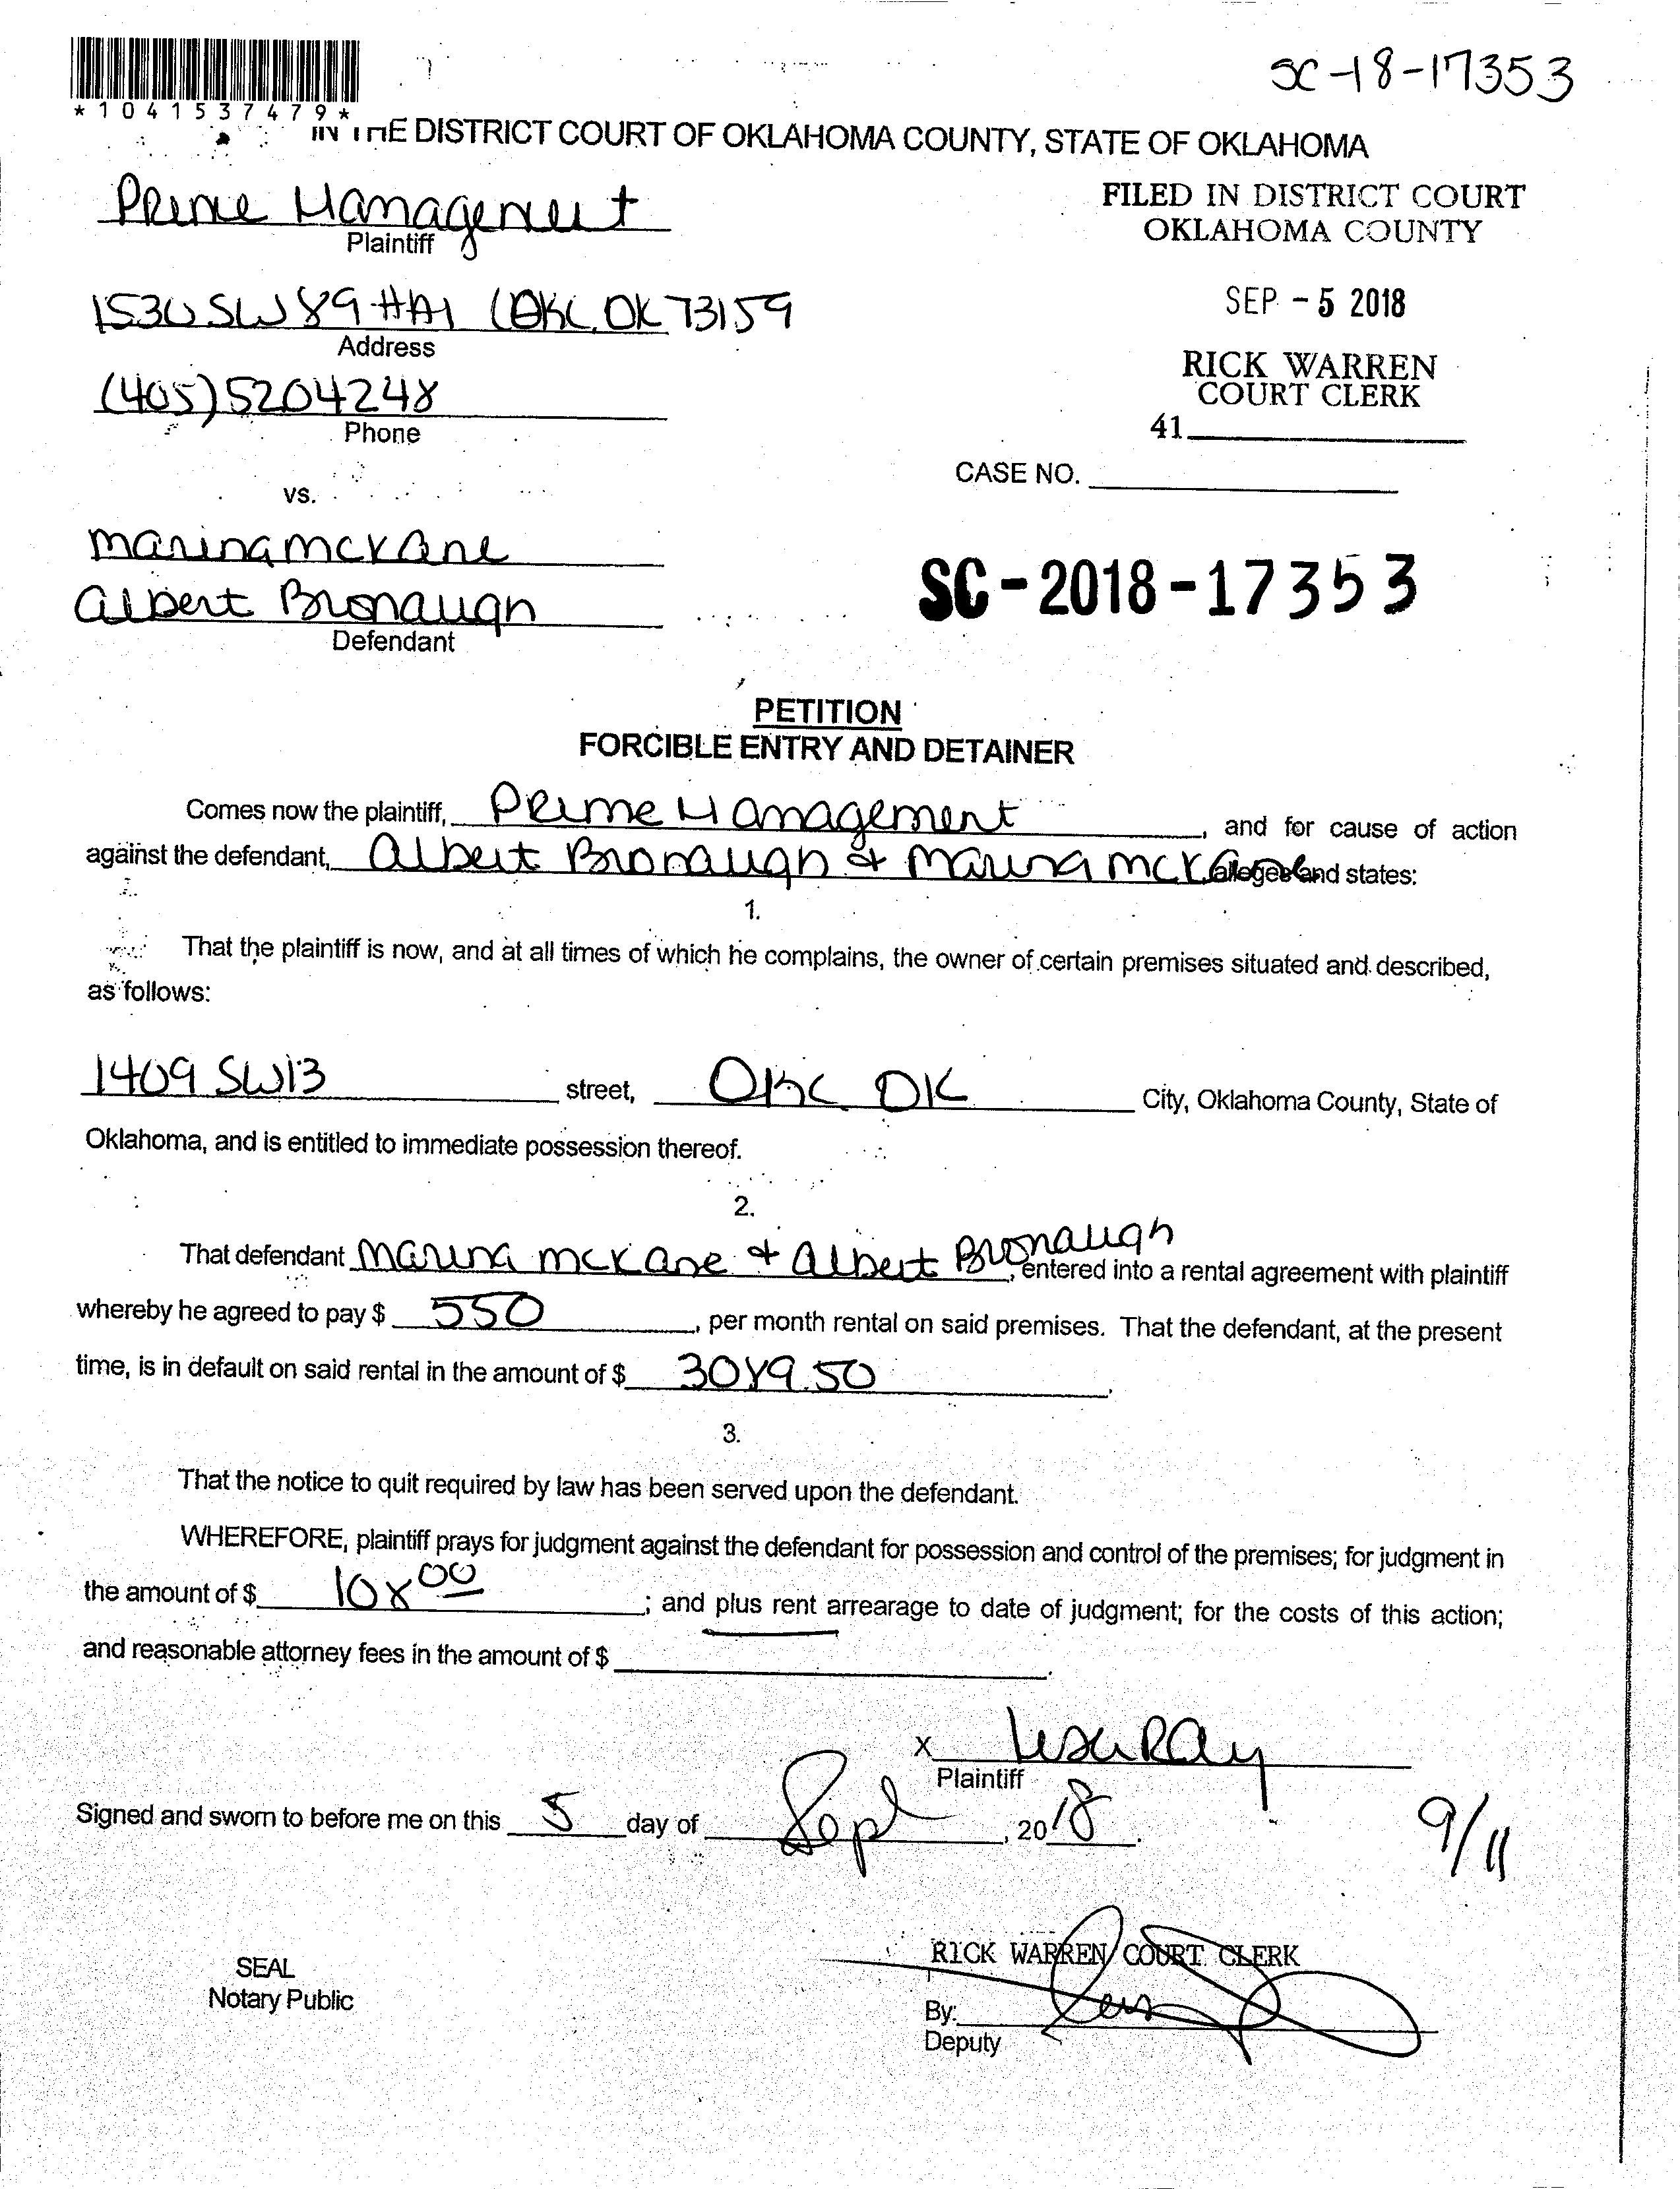 SC-18-17353
*1041537479*
IN THE DISTRICT COURT OF OKLAHOMA COUNTY, STATE OF OKLAHOMA
Prime Management
Plaintiff
FILED IN DISTRICT COURT
OKLAHOMA COUNTY
1530 SW 89 #A1 OKC OK 73159
Address
SEP - 5 2018
(405) 5204248
Phone
RICK WARREN
COURT CLERK
41
CASE NO.
vs.
Marina McKane
Albert Bronaugh
Defendant
SC-2018-17353
PETITION
FORCIBLE ENTRY AND DETAINER
Comes now the plaintiff, Prime Management, and for cause of action
against the defendant, Albert Bronaugh & Marina McKane alleges and states:
1.
That the plaintiff is now, and at all times of which he complains, the owner of certain premises situated and described,
as follows:
1409 SW13 street, OKC OK City, Oklahoma County, State of
Oklahoma, and is entitled to immediate possession thereof.
2.
That defendant Marina McKane + Albert Bronaugh, entered into a rental agreement with plaintiff
whereby he agreed to pay $ 550, per month rental on said premises. That the defendant, at the present
time, is in default on said rental in the amount of $ 3089.50.
3.
That the notice to quit required by law has been served upon the defendant.
WHEREFORE, plaintiff prays for judgment against the defendant for possession and control of the premises; for judgment in
the amount of $ 108 00; and plus rent arrearage to date of judgment; for the costs of this action;
and reasonable attorney fees in the amount of $.
x Lesa Ray
Plaintiff
Signed and sworn to before me on this 5 day of Sept, 2018.
9/11
SEAL
Notary Public
RICK WARREN COURT CLERK
By:
Deputy